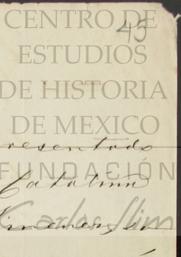 45
CENTRO DE
ESTUDIOS
DE HISTORIA
DE MEXICO
resentado
FUNDACIÓN
Catalina
Carlos Slim